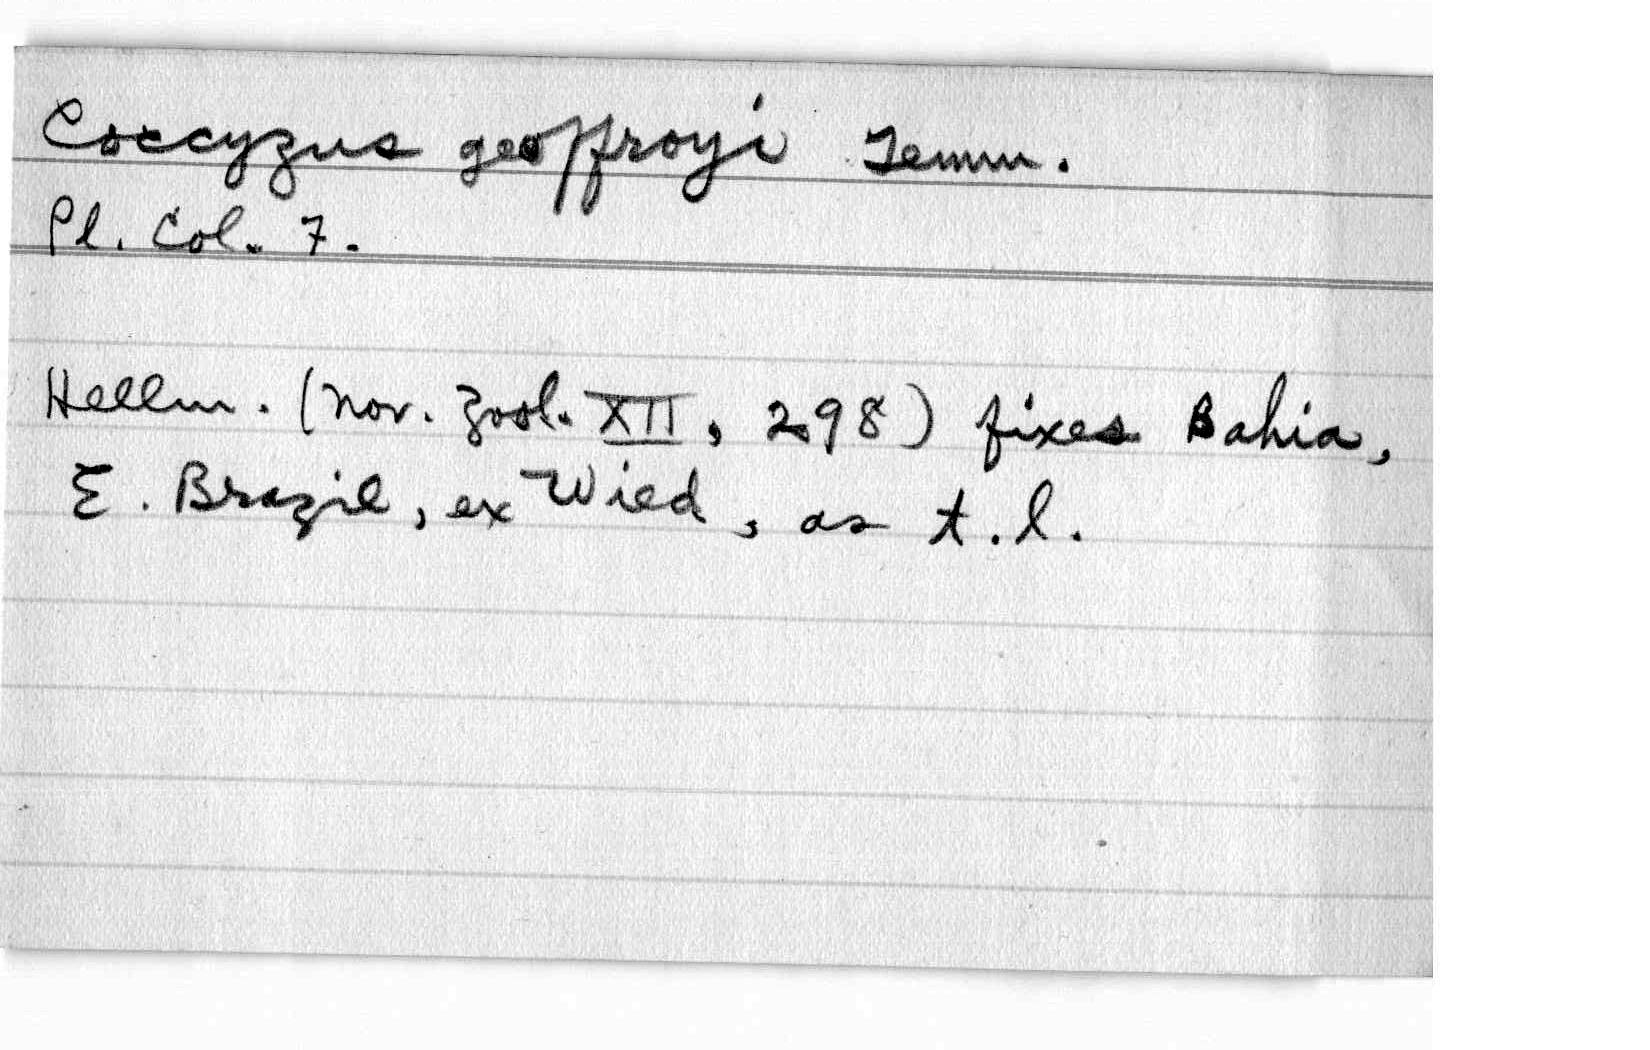 Coccyzus geoffroyi Temm.
Pl. Col. 7.
Hellm. (Nov. Zool. XII, 298) fixes Bahia,
E. Brazil, ex Wied, as t.l.